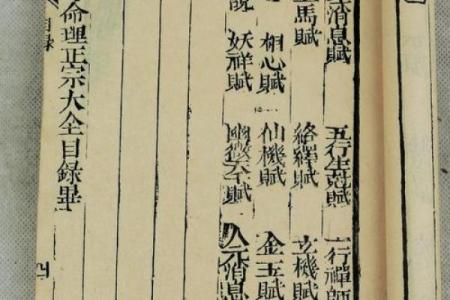 消息賦 五行生剋賦 一行禪師
馬賦 絡繹賦 玄機賦
相心賦 仙機賦 金玉賦
說 妖祥賦 幽微賦 人元消息
命理正宗大全目錄畢
目錄 四